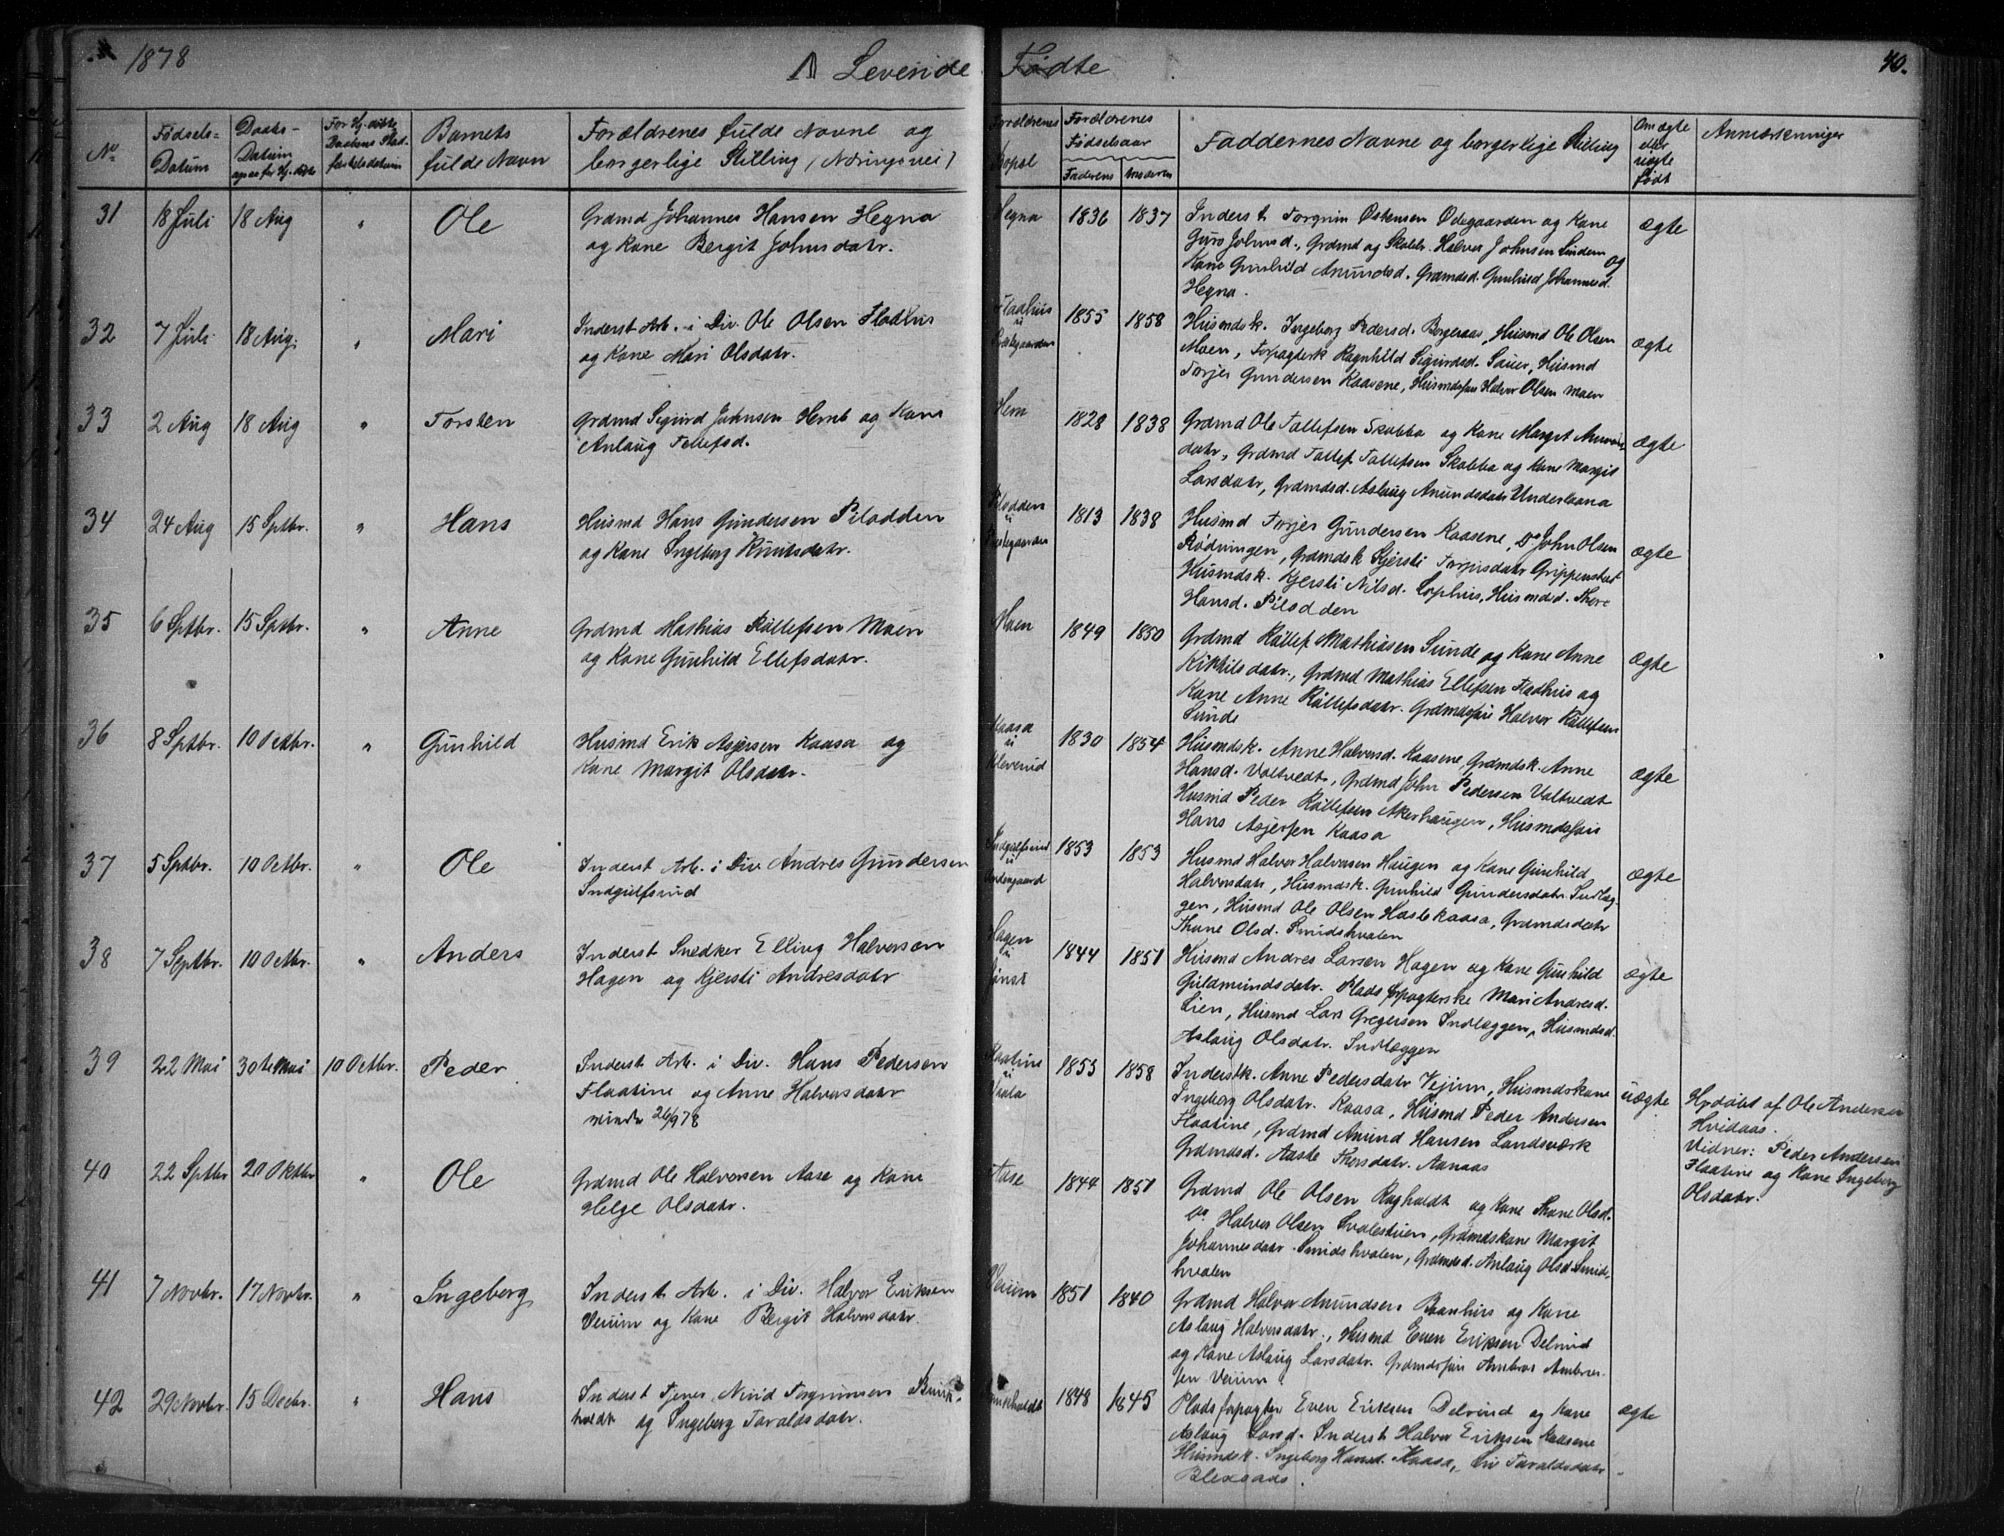 1878
A Levende Fødte
40.
No
Fødsels-
Datum
Daabs-
Datum
For Hj. døbte
Daabens Stad-
fæstelsesdatum
Barnets
fulde Navn
Forældrenes fulde Navne og
borgerlige Stilling (Næringsvei)
Forældrenes
Bopæl
Forældrenes
Fødselsaar
Faderens
Moderens
Faddernes Navne og borgerlige Stilling
Om ægte
eller
uægte
født
Anmærkninger
31
18 Juli
18 Aug
"
Ole
Grdmd Johannes Hansen Hegna
og Kone Bergit Johnsdatr.
Hegna
1836
1837
Inderst Torgrim Østensen Ødegaarden og Kone
Guro Johnsd., Grdmd og Skolelr. Halvor Johnsen Lindem og
Kone Gunhild Anundsd. Grdmdsd. Gunhild Johannesd.
Hegna.
ægte
32
7 Juli
18 Aug.
"
Mari
Inderst Arb. i Div. Ole Olsen Fladhus
og Kone Mari Olsdatr.
Fladhus
u
Prestegaarden
1855
1858
Husmdsk. Ingeborg Pedersd. Borgeraas, Husmd Ole Olsen
Moen, Forpagterk Ragnhild Sigurdsd. Sauer, Husmd
Torjer Gundersen Kaasene, Husmdsøn Halvor Olsen Moen
ægte
33
2 Aug
18 Aug
"
Torsten
Grdmd Sigurd Johnsen Hem og Kone
Anlaug Tollefsd.
Hem
1828
1838
Grdmd Ole Tollefsen Skobba og Kone Margit Anunds-
datr, Grdmd Tollef Tollefsen Skobba og Kone Margit
Larsdatr, Grdmdsd. Aslaug Anundsdatr Underlaana
ægte
34
24 Aug
15 Sptbr.
"
Hans
Husmd Hans Gundersen Pilodden
og Kone Ingeborg Knutsdatr.
Pilodden
u
Prestegaarden
1813
1838
Husmd Torjer Gundersen Kaasene, Do John Olsen
Rødningen, Grdmdsk Kjersti Torjusdatr Grippenstad
Husmdsk. Kjersti Nilsd. Lophus, Husmdsd. Thore
Hansd. Pilodden
ægte
35
6 Sptbr.
15 Sptbr.
"
Anne
Grdmd Mathias Rollefsen Moen
og Kone Gunhild Ellefsdatr.
Moen
1849
1850
Grdmd Rollef Mathiasen Sunde og Kone Anne
Kittilsdatr., Grdmd Mathias Ellefsen Fladhus og
Kone Anne Rollefsdatr. Grdmdsøn Halvor Rollefsen
Sunde
ægte
36
8 Sptbr.
10 Octbr.
"
Gunhild
Husmd Erik Asjersen Kaasa og
Kone Margit Olsdatr.
Kaasa
u
Kleverud
1830
1854
Husmdsk. Anne Halvorsd. Kaasene, Grdmdsk. Anne
Hansd. Valtvedt, Grdmd John Pedersen Valtvedt
Husmd Peder Rollefsen Akerhaugen, Husmdsøn
Hans Asjersen Kaasa
ægte
37
5 Sptbr.
10 Octbr.
"
Ole
Inderst Arb. i Div Andres Gundersen
Indgulfsrud
Indgulfsrud
u
1853
1853
Husmd Halvor Halvorsen Haugen og Kone Gunhild
Halvorsdatr, Husmdsk. Gunhild Gundersdatr Indlæg-
gen, Husmd Ole Olsen Haslekaasa, Grdmdsdatr
Thone Olsd. Smidshvalen
ægte
38
7 Septbr.
10 Octbr.
"
Anders
Inderst Snedker Elling Halvorsen
Hagen og Kjersti Andresdatr
Hagen
u
1844
1851
Husmd Andres Larsen Hagen og Kone Gunhild
Guldmundsdatr. Pladsforpagterske Mari Andresd.
Lien, Husmd Lars Gregersen Indlæggen, Husmdsd.
Aslaug Olsdatr. Indlæggen
ægte
39
22 Mai
30te Mai
10 Octbr.
Peder
Inderst Arb. i Div. Hans Pedersen
Flaatine og Anne Halvorsdatr
26/9 78
Flaatine
u
1853
1858
Inderstk. Anne Pedersdatr Vejium, Husmdskone
Ingeborg Olsdatr. Kaasa, Husmd Peder Andersen
Flaatine, Grdmd Amund Hansen Landsværk
Grdmdsd. Aaste Thorsdatr. Aanaas
uægte
Hjdøbt af Ole Andersen
Hvidaas.
Vidner: Peder Andersen
Flaatine og Kone Ingeborg
Olsdatr.
40
22 Sptbr
20 Oktbr
"
Ole
Grdmd Ole Halvorsen Aase og Kone
Helge Olsdatr.
Aase
1844
1851
Grdmd Ole Olsen Ragholdt og Kone Thone Olsd.
Do Halvor Olsen Svalestuen, Grdmdskone Margit
Johannesdatr. Smidshvalen, Grdmdsd. Anlaug Olsd. Smids-
hvalen
41
7 Novbr.
17 Novbr.
"
Ingeborg
Inderst Arb. i Div. Halvor Eriksen
Veium og Kone Bergit Halvorsdatr.
Veium
1851
1840
Grdmd Halvor Anundsen Baanhus og Kone
Aslaug Halvorsdatr., Husmd Even Eriksen Delvind
og Kone Aslaug Larsdatr. Grdmdsøn Ambros Ambros-
sen Veium
42
29 Novbr.
15 Decbr.
"
Hans
Inderst Tjener Nirid Torgrimsen Bunk-
holdt og Ingeborg Taraldsdatr.
Bunkholdt
1848
1845
Pladsforpagter Even Eriksen Delvind og Kone
Aslaug Larsd. Inderst Halvor Eriksen Kaasene
Husmdsk. Ingeborg Hansd. Kaasa, Taraldsdatr
ægte